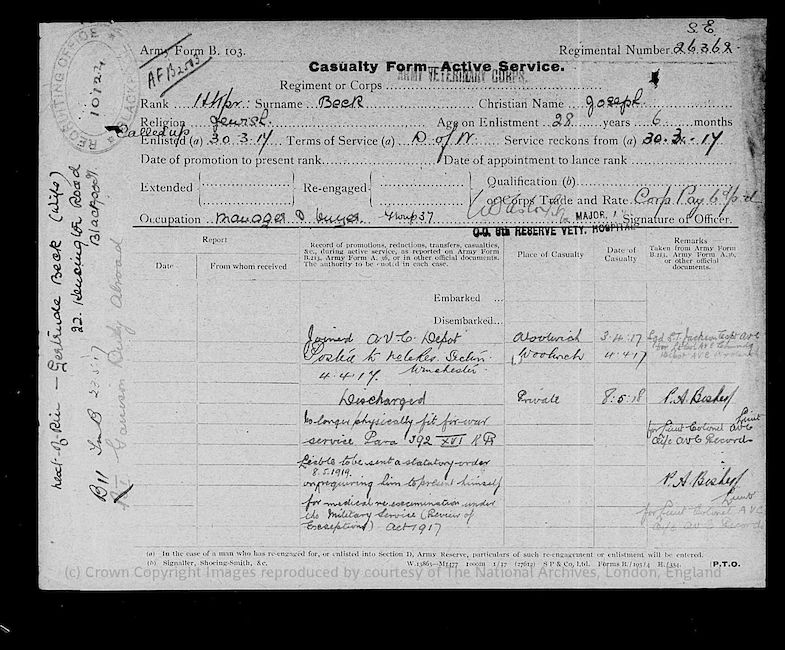 S.E.
Army Form B. 103.
Regimental Number 26362
AFB2513
Casualty Form—Active Service.
ARMY VETERINARY CORPS.
Regiment or Corps
RECRUITING OFFICE
10122
Rank Surname Beck Christian Name Joseph
Religion Jewish Age on Enlistment 28 years 6 months
Called up
Enlisted (a) 30.3.17 Terms of Service (a) D of W Service reckons from (a) 30.3.17
Date of promotion to present rank Date of appointment to lance rank
Extended Re-engaged Qualification (b)
or Corps Trade and Rate Corps Pay
MAJOR,
Occupation Manager Group 37 Signature of Officer.
O.C. 6th RESERVE VETY. HOSPITAL
Next-of-Kin — Gertrude Beck (Wife)
22. Kensington Road
Blackpool.
B11 23.5.17
Garrison Duty Abroad
Report
Date
From whom received
Record of promotions, reductions, transfers, casualties,
&c., during active service, as reported on Army Form
B.213, Army Form A. 36, or in other official documents.
The authority to be quoted in each case.
Place of Casualty
Date of
Casualty
Remarks
Taken from Army Form
B.213, Army Form A.36,
or other official
documents.
Embarked ...
Disembarked...
Joined AVC Depot Woolwich 3.4.17
Posted to Section Woolwich 4.4.17
4.4.17. Winchester
Discharged Private 8.5.18 P.A. Bishop
Lieut
No longer physically fit for war
for Lieut Colonel AVC
service Para 392 XVI KR
i/c AVC Records
Liable to be sent a statutory order
8.5.1919.
on requiring him to present himself P.A. Bishop
Lieut
for medical re-examination under
for Lieut Colonel AVC
the Military Service (Review of
i/c AVC Records
Exceptions) Act 1917
(a) In the case of a man who has re-engaged for, or enlisted into Section D, Army Reserve, particulars of such re-engagement or enlistment will be entered.
(b) Signaller, Shoeing-Smith, &c.
W.13865—M1477 1000m 1/17 (27612) S P & Co., Ltd. Forms B./103/4 [P.T.O.
(c) Crown Copyright Images reproduced by courtesy of The National Archives, London, England